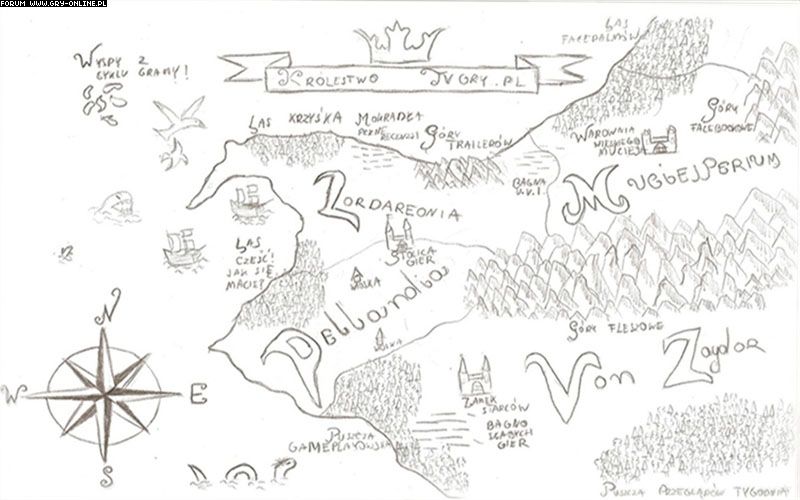 FORUM WWW.GRY-ONLINE.PL
LAS
FACEPALMÓW
WYSPY Z
CYKLU GRAMY!
KRÓLESTWO TVGRY.PL
LAS KRZYŚKA
MOGRADŁA
PEŁNE
RECENZJI
GÓRY
TRAILERÓW
GÓRY
FACEBOOKOWE
WAROWNIA
MUCIEJ
BAGNA
U.V.I.
LORDAREONIA
STOLICA
GIER
LAS
CZEŚĆ!
JAK SIĘ
MACIE?
WIOSKA
GÓRY FLEJOWE
VON Zagdor
ZAMEK
STARCÓW
BAGNO
SŁABYCH
GIER
PUSZCZA
GAMEPLAYOWSKA
PUSZCZA PRZEGLĄDÓW TYGODNIA
N
W
E
S